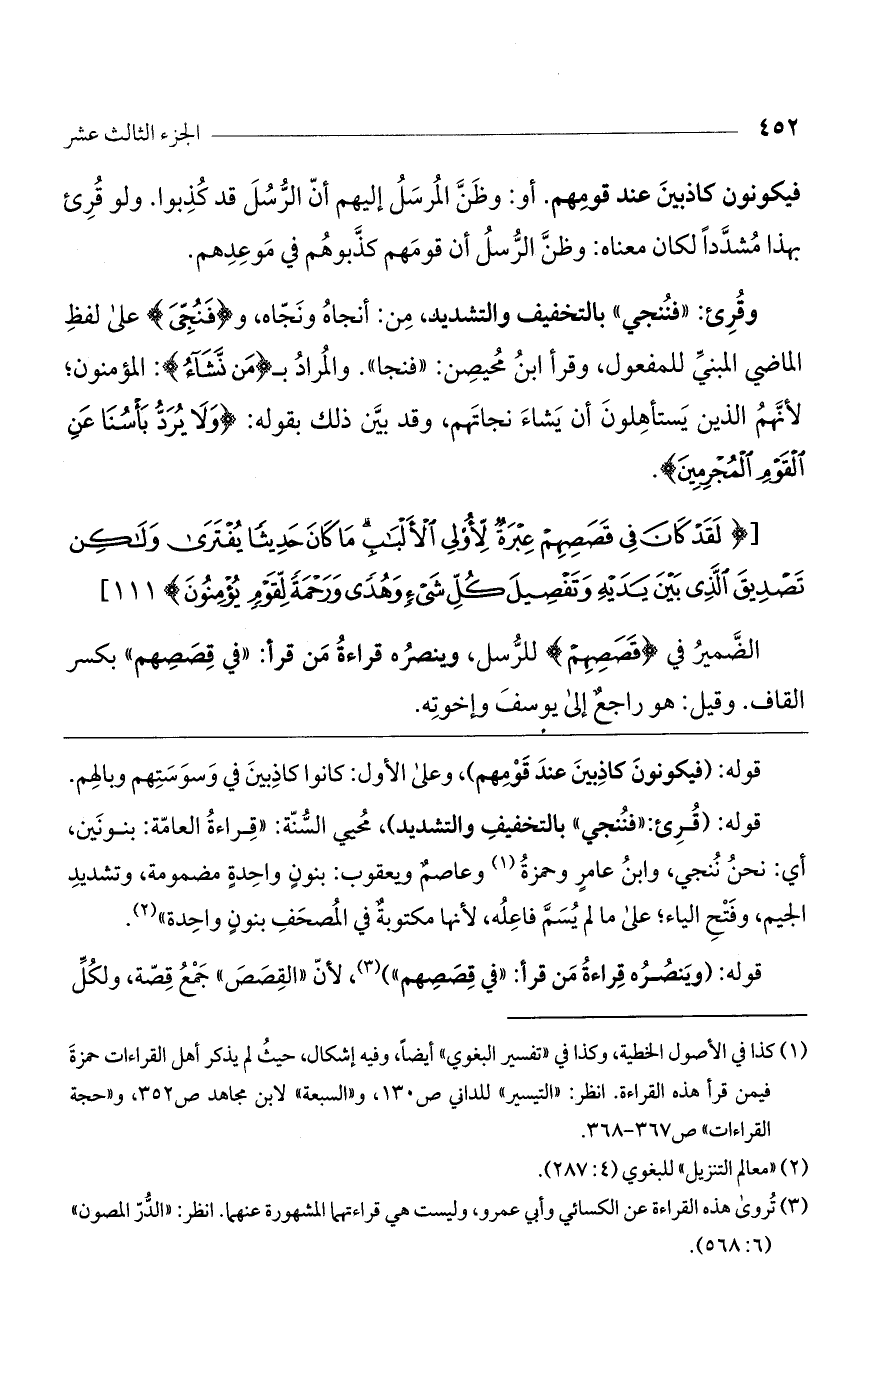 ٤٥٢ الجزء الثالث عشر
فيكونون كاذبينَ عند قومِهم. أو: وظَنَّ المُرسَلُ إليهم أنّ الرُّسُلَ قد كُذِبوا. ولو قُرِئ
بهذا مُشدَّداً لكان معناه: وظنَّ الرُّسلُ أن قومَهم كذَّبوهُم في مَوعِدِهم.
وقُرِئ: «فنُنجي» بالتخفيف والتشديد، مِن: أنجاهُ ونَجّاه، و﴿فَنُجِّىَ﴾ علىٰ لفظِ
الماضي المبنيِّ للمفعول، وقرأ ابنُ مُحيصِن: «فنجا». والمُرادُ بـ﴿مَن نَّشَآءُ﴾: المؤمنون؛
لأنَّهمُ الذين يَستأهِلونَ أن يَشاءَ نجاتَهم، وقد بيَّن ذلك بقوله: ﴿وَلَا يُرَدُّ بَأْسُنَا عَنِ
ٱلْقَوْمِ ٱلْمُجْرِمِينَ﴾.
[﴿ لَقَدْ كَانَ فِى قَصَصِهِمْ عِبْرَةٌ لِّأُو۟لِى ٱلْأَلْبَـٰبِ ۗ مَا كَانَ حَدِيثًا يُفْتَرَىٰ وَلَـٰكِن
تَصْدِيقَ ٱلَّذِى بَيْنَ يَدَيْهِ وَتَفْصِيلَ كُلِّ شَىْءٍ وَهُدًى وَرَحْمَةً لِّقَوْمٍ يُؤْمِنُونَ ﴾ ١١١]
الضَّميرُ في ﴿قَصَصِهِمْ﴾ للرُّسل، وينصرُه قراءةُ مَن قرأ: «في قِصَصِهم» بكسر
القاف. وقيل: هو راجعٌ إلىٰ يوسفَ وإخوتِه.
قوله: (فيكونونَ كاذِبينَ عندَ قَوْمِهم)، وعلىٰ الأول: كانوا كاذِبينَ في وَسوَسَتِهم وبالِهم.
قوله: (قُرِئ:«فنُنجي» بالتخفيفِ والتشديد)، مُحيي السُّنّة: «قراءةُ العامّة: بنونَين،
أي: نحنُ نُنجي، وابنُ عامرٍ وحمزةُ(١) وعاصمٌ ويعقوب: بنونٍ واحِدةٍ مضمومة، وتشديدِ
الجيم، وفَتْحِ الياء؛ علىٰ ما لم يُسَمَّ فاعِلُه، لأنها مكتوبةٌ في المُصحَفِ بنونٍ واحِدة»(٢).
قوله: (ويَنصُرُه قِراءةُ مَن قرأ: «في قِصَصِهم»)(٣)، لأنّ «القِصَصَ» جَمْعُ قِصّة، ولكُلِّ
(١) كذا في الأصول الخطية، وكذا في «تفسير البغوي» أيضاً، وفيه إشكال، حيثُ لم يذكر أهل القراءات حمزةَ
فيمن قرأ هذه القراءة. انظر: «التيسير» للداني ص١٣٠، و«السبعة» لابن مجاهد ص٣٥٢، و«حجة
القراءات» ص٣٦٧-٣٦٨.
(٢) «معالم التنزيل» للبغوي (٤: ٢٨٧).
(٣) تُروىٰ هذه القراءة عن الكسائي وأبي عمرو، وليست هي قراءتهما المشهورة عنهما. انظر: «الدُّرّ المصون»
(٦: ٥٦٨).